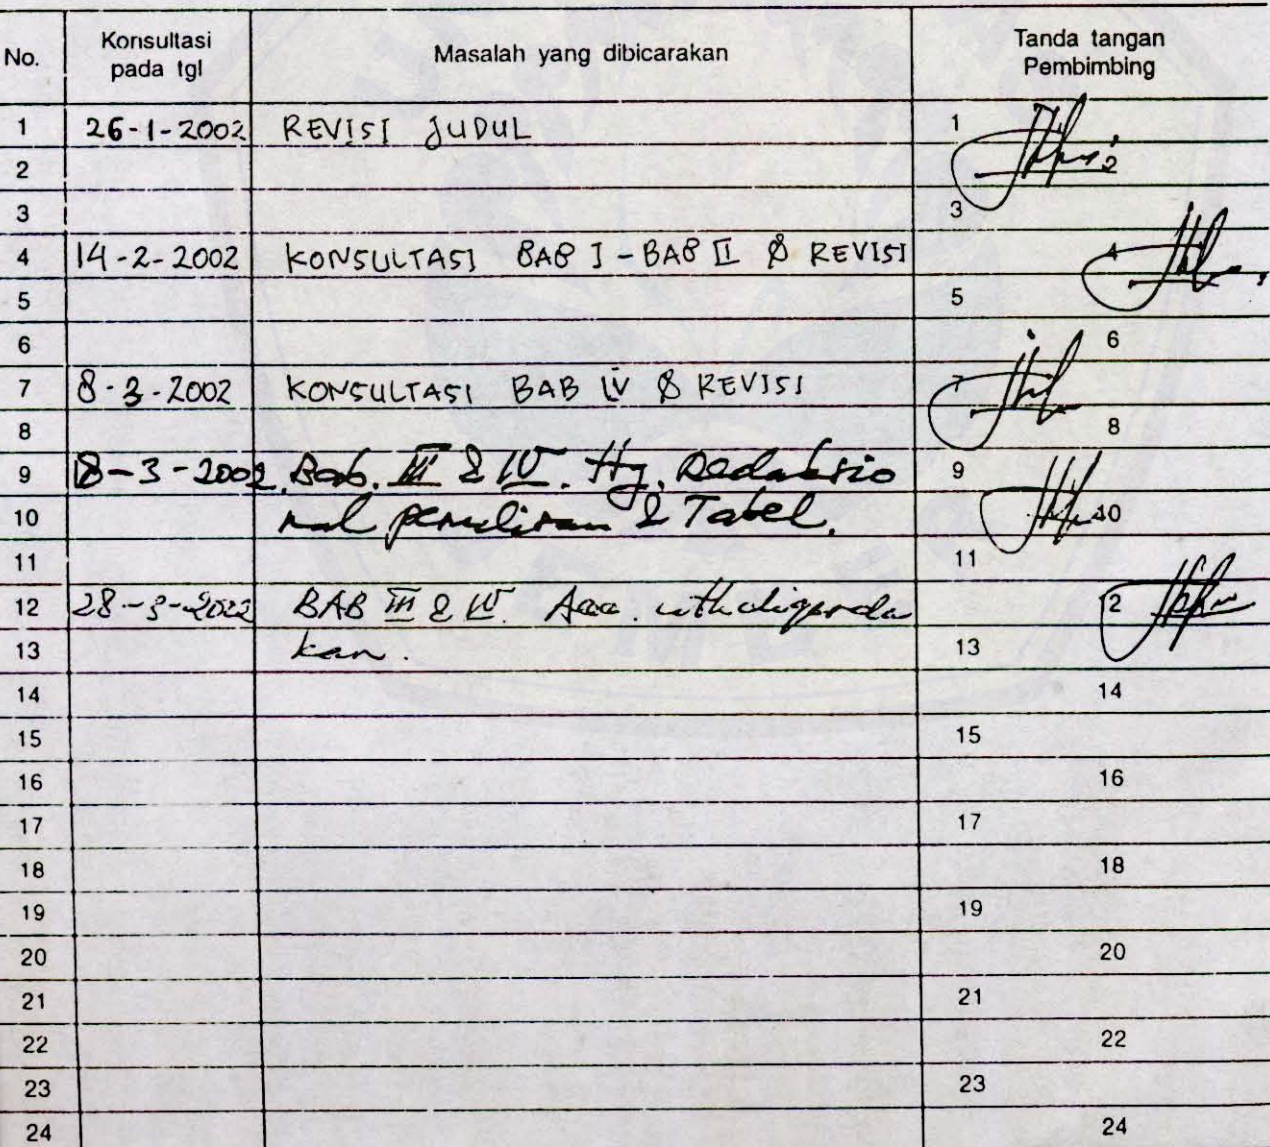 No. Konsultasi pada tgl Masalah yang dibicarakan Tanda tangan Pembimbing
1 26-1-2002 REVISI JUDUL 1
2 2
3 3
4 14-2-2002 KONSULTASI BAB I - BAB II & REVISI 4
5 5
6 6
7 8-3-2002 KONSULTASI BAB IV & REVISI 7
8 8
9 18-3-2002. Bab. III & IV. Hg. Redaksio 9
10 nal penulisan & Tabel. 10
11 11
12 28-3-2002 BAB III & IV. Acc. utk diganda 12
13 kan. 13
14 14
15 15
16 16
17 17
18 18
19 19
20 20
21 21
22 22
23 23
24 24